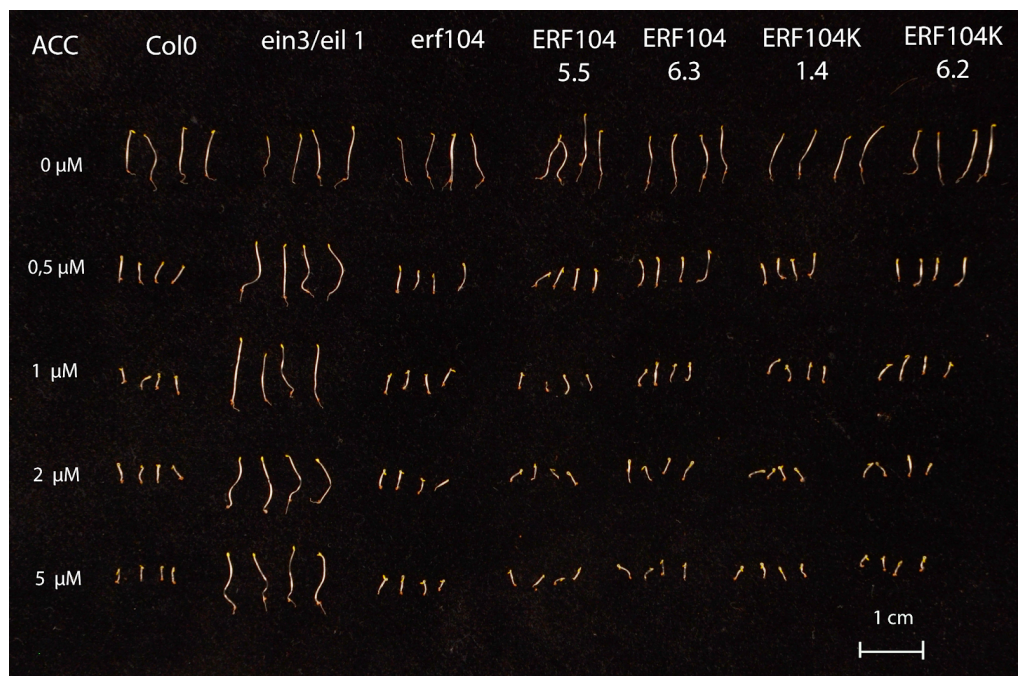 ACC Col0 ein3/eil 1 erf104 ERF104 ERF104 ERF104K ERF104K
5.5 6.3 1.4 6.2
0 µM
0,5 µM
1 µM
2 µM
5 µM
1 cm